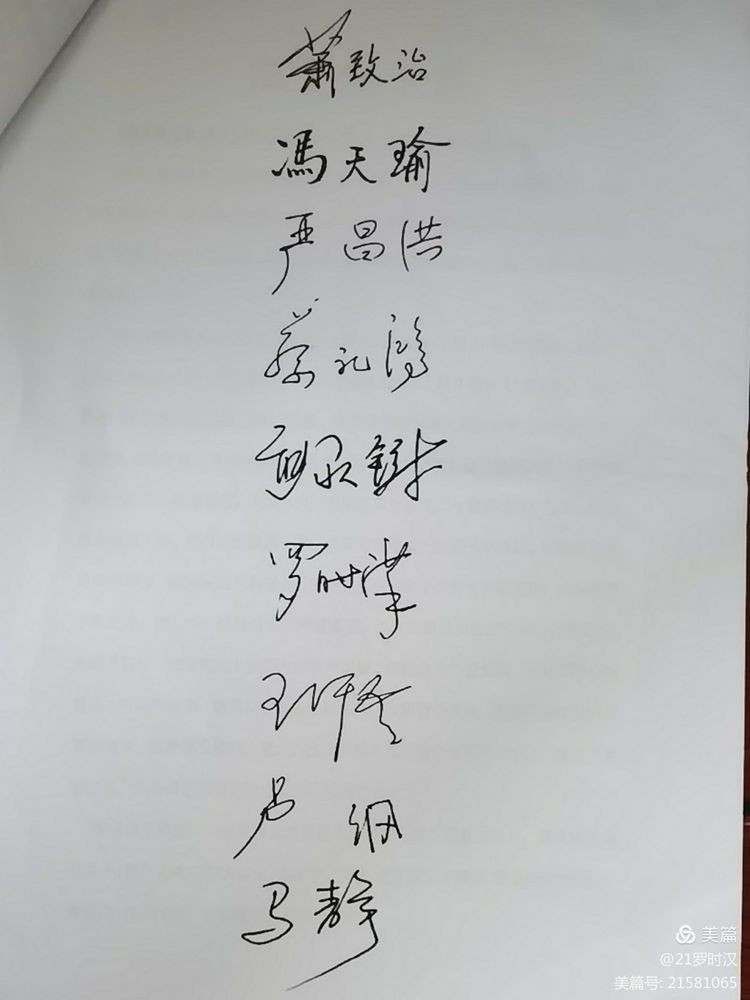 萧致治
馮天瑜
严昌洪
蔡礼鸿
罗时汉
卢纲
马静
美篇
@21罗时汉
美篇号: 21581065